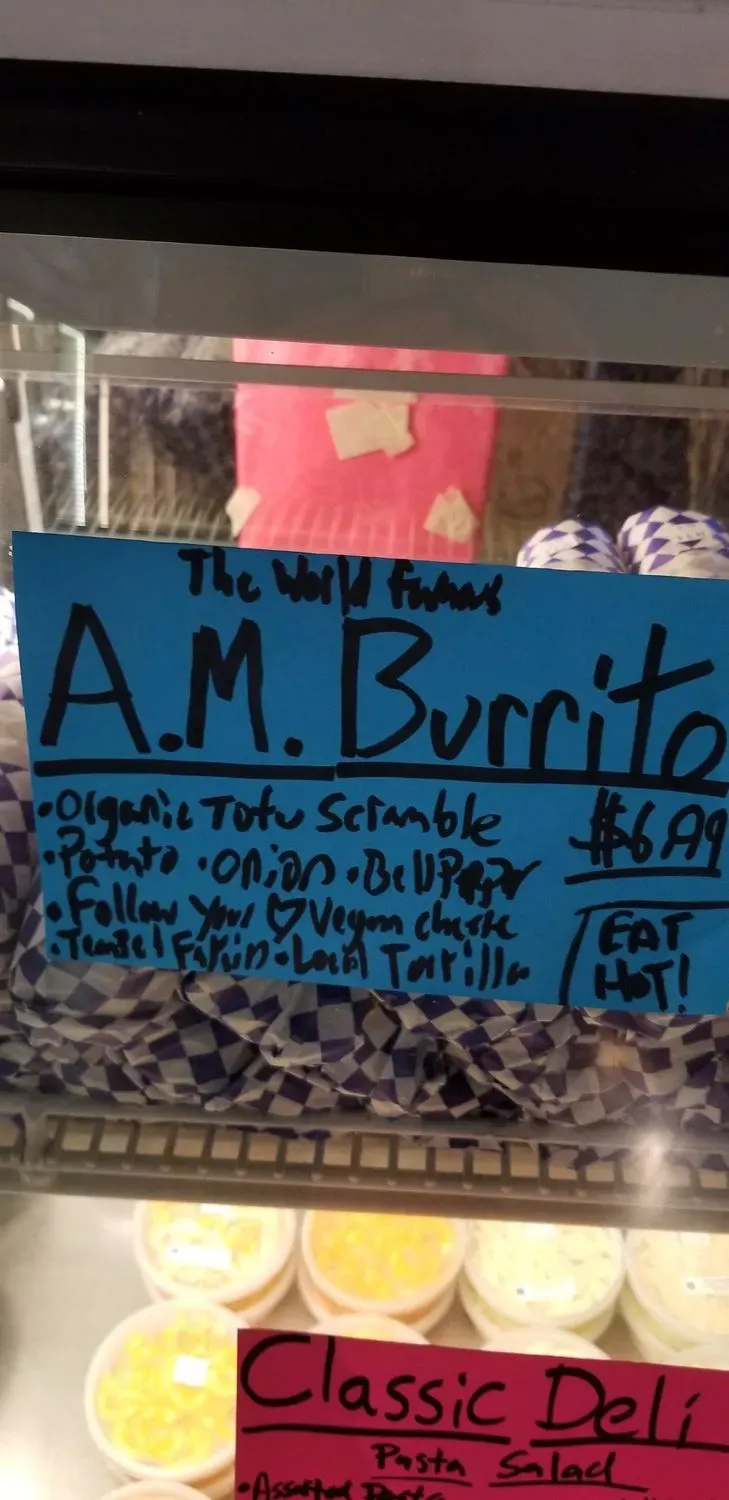 The World Famous
A.M. Burrito
• Organic Tofu Scramble
• Potato • Onion • Bell Pepper
• Follow Your ♡ Vegan cheese
• Local Tortilla
$6.49
EAT
HOT!
Classic Deli
Pasta Salad
• Assorted Pasta